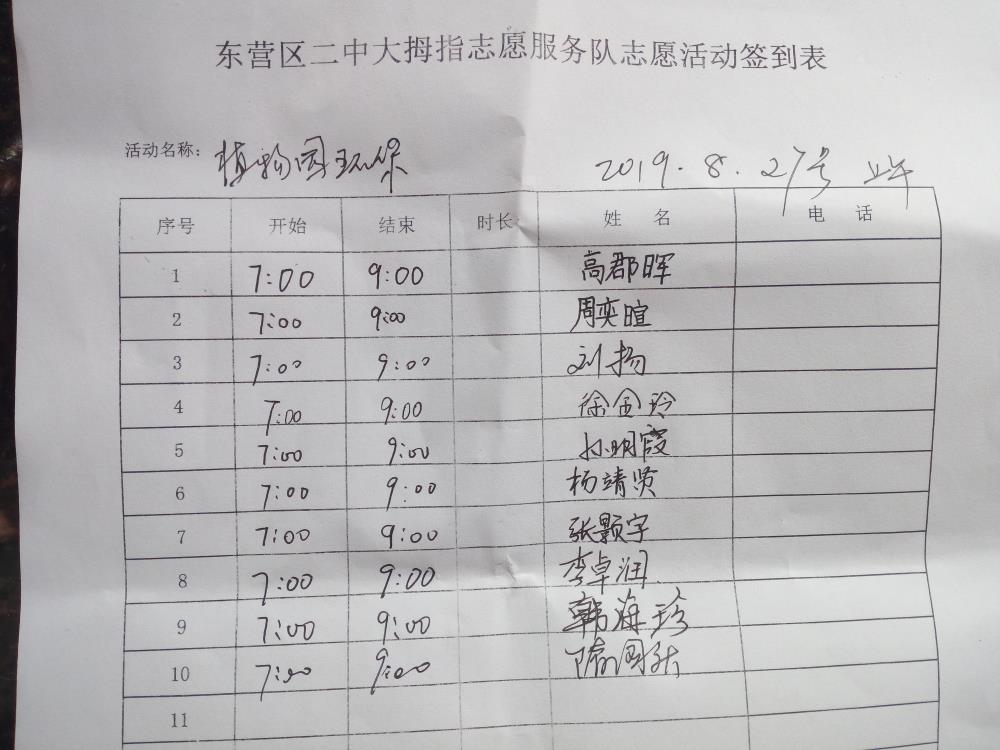 东营区二中大拇指志愿服务队志愿活动签到表
活动名称：植物园环保 2019.8.27号 上午
序号 开始 结束 时长 姓名 电话
1 7:00 9:00 高郡晖
2 7:00 9:00 周奕暄
3 7:00 9:00 刘扬
4 7:00 9:00 徐金玲
5 7:00 9:00 孙明霞
6 7:00 9:00 杨靖贤
7 7:00 9:00 张颢宇
8 7:00 9:00 李卓润
9 7:00 9:00 韩海珍
10 7:00 9:00
11